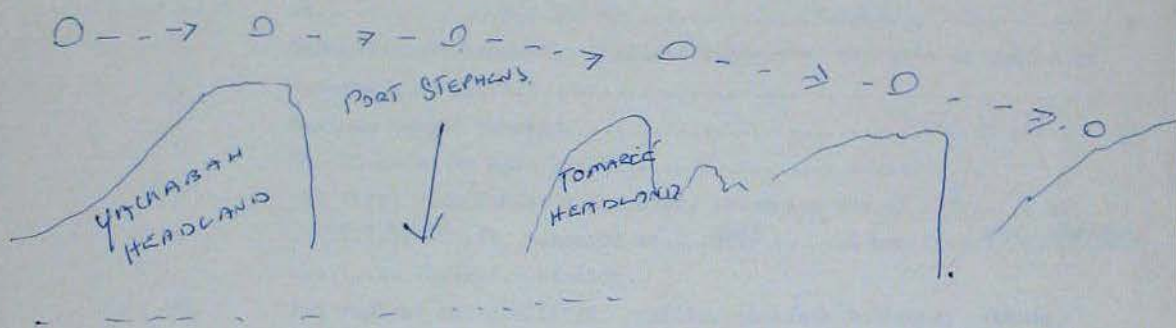 PORT STEPHENS.
YACKABAH
HEADLAND
TOMAREE
HEADLAND